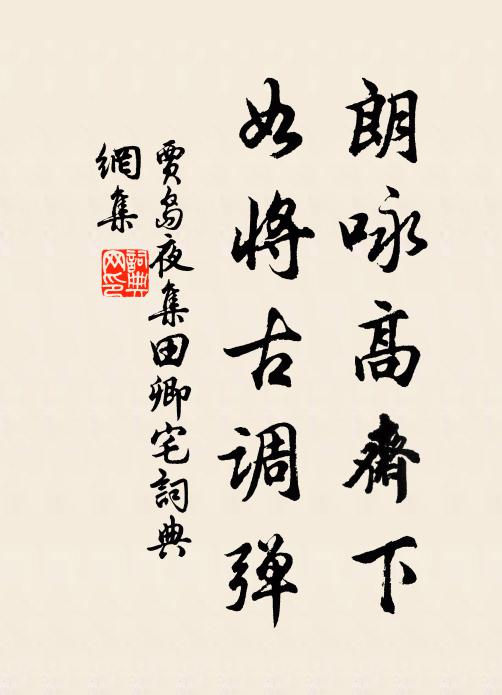 朗咏高齋下
如将古调弹
賈島夜集田卿宅詞典
網集
詞典
网印